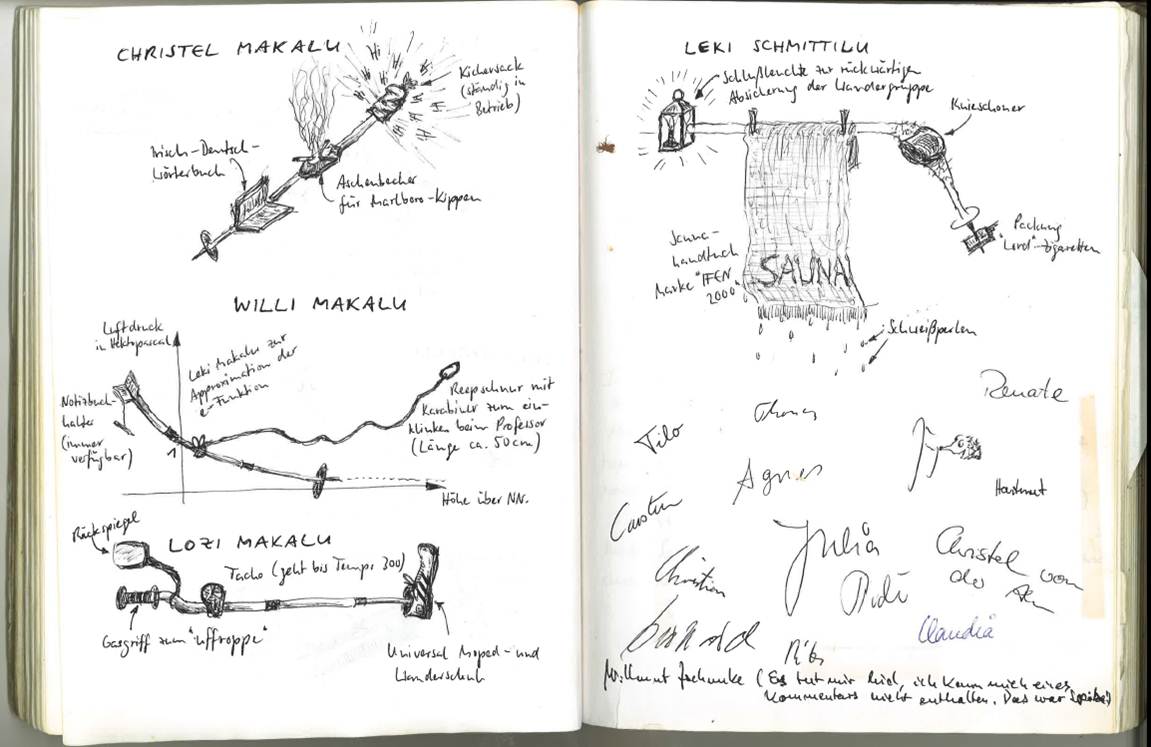 CHRISTEL MAKALU
Hi Hi Hi Hi Hi
Kichersack
(ständig in
Betrieb)
Irisch-Deutsch-
Wörterbuch
Aschenbecher
für Marlboro-Kippen
WILLI MAKALU
Luftdruck
in Hektopascal
Leki Makalu zur
Approximation der
e-Funktion
Notizbuch-
halter
(immer
verfügbar)
1
Reepschnur mit
Karabiner zum ein-
klinken beim Professor
(Länge ca. 50cm)
Höhe über NN.
Rückspiegel
LOZI MAKALU
Tacho (geht bis Tempo 300)
Gasgriff zum "uffroppe"
Universal Moped- und
Wanderschuh
LEKI SCHMITTILU
Schlußleuchte zur rückwärtigen
Absicherung der Wandergruppe
Knieschoner
Packung
"Lord"-Zigaretten
Sauna-
handtuch
Marke
2000"
SAUNA
Schweißperlen
Renate
Thomas
Tilo
Agnes
Hartmut
Carsten
Julia
Christel von
der Alm
Christian
Rudi
Claudia
(Es tut mir leid, ich kann mich eines
Kommentars nicht enthalten. Das war Spitze!)